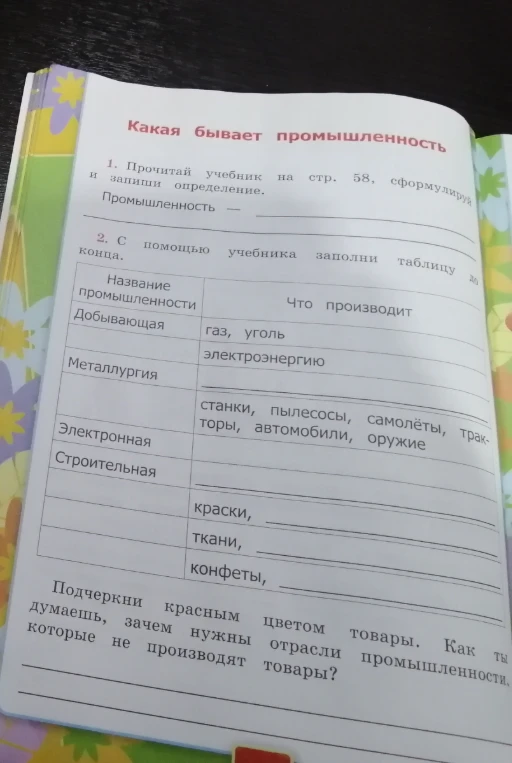 Какая бывает промышленность
1. Прочитай учебник на стр. 58, сформулируй
и запиши определение.
Промышленность —
2. С помощью учебника заполни таблицу до
конца.
Название
промышленности
Что производит
Добывающая
газ, уголь
электроэнергию
Металлургия
станки, пылесосы, самолёты, трак-
торы, автомобили, оружие
Электронная
Строительная
краски,
ткани,
конфеты,
Подчеркни красным цветом товары. Как ты
думаешь, зачем нужны отрасли промышленности,
которые не производят товары?